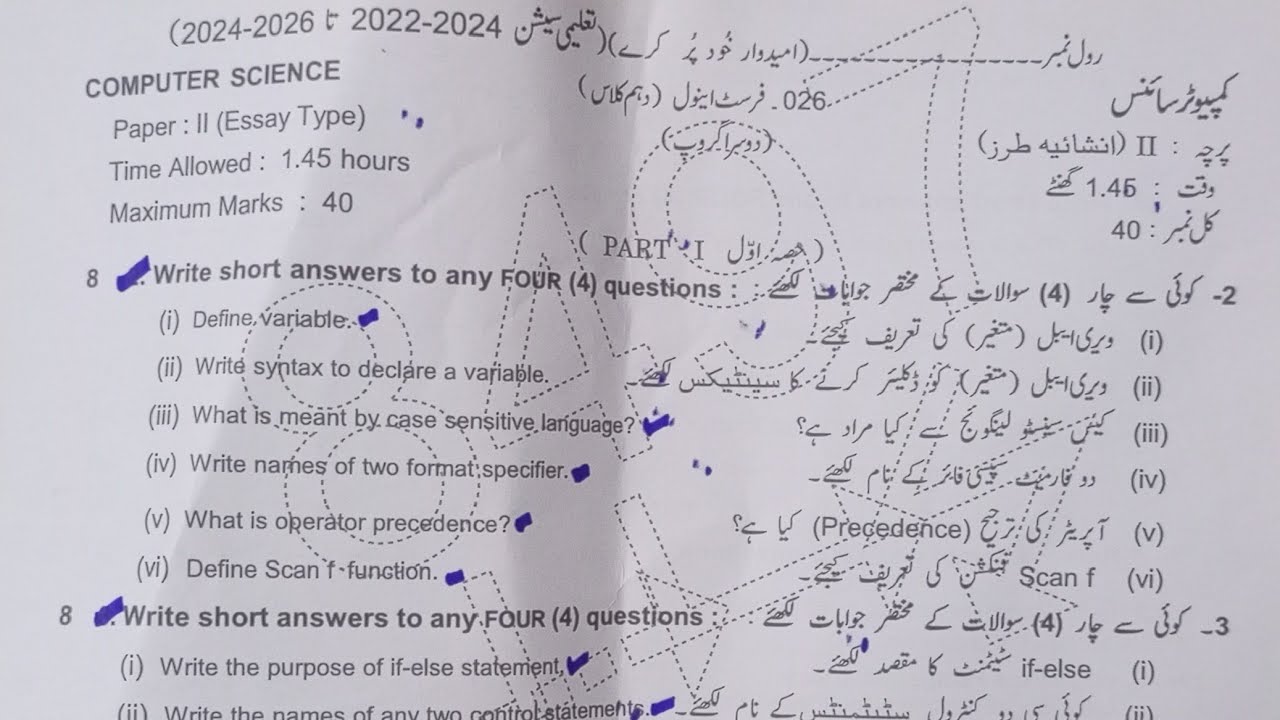 رول نمبر ــــــــــــــــ (امیدوار خُود پُر کرے) (تعلیمی سیشن 2024-2022 تا 2026-2024)
COMPUTER SCIENCE
026۔ فرسٹ اینول (دہم کلاس)
کمپیوٹر سائنس
Paper : II (Essay Type)
(دوسرا گروپ)
پرچہ : II (انشائیہ طرز)
Time Allowed : 1.45 hours
وقت : 1.45 گھنٹے
Maximum Marks : 40
کل نمبر : 40
( PART - I حصہ اوّل )
8 Write short answers to any FOUR (4) questions :
2- کوئی سے چار (4) سوالات کے مختصر جوابات لکھئے :
(i) Define variable.
(i) ویری ایبل (متغیر) کی تعریف کیجئے۔
(ii) Write syntax to declare a variable.
(ii) ویری ایبل (متغیر) کو ڈکلیئر کرنے کا سینٹیکس لکھئے۔
(iii) What is meant by case sensitive language?
(iii) کیس سینسٹو لینگوئج سے کیا مراد ہے؟
(iv) Write names of two format specifier.
(iv) دو فارمیٹ سپیسی فائر کے نام لکھئے۔
(v) What is operator precedence?
(v) آپریٹر کی ترجیح (Precedence) کیا ہے؟
(vi) Define Scan f function.
(vi) Scan f فنکشن کی تعریف کیجئے۔
8 Write short answers to any FOUR (4) questions :
3۔ کوئی سے چار (4) سوالات کے مختصر جوابات لکھئے :
(i) Write the purpose of if-else statement.
(i) if-else سٹیٹمنٹ کا مقصد لکھئے۔
(ii) Write the names of any two control statements.
(ii) کوئی سی دو کنٹرول سٹیٹمنٹس کے نام لکھئے۔